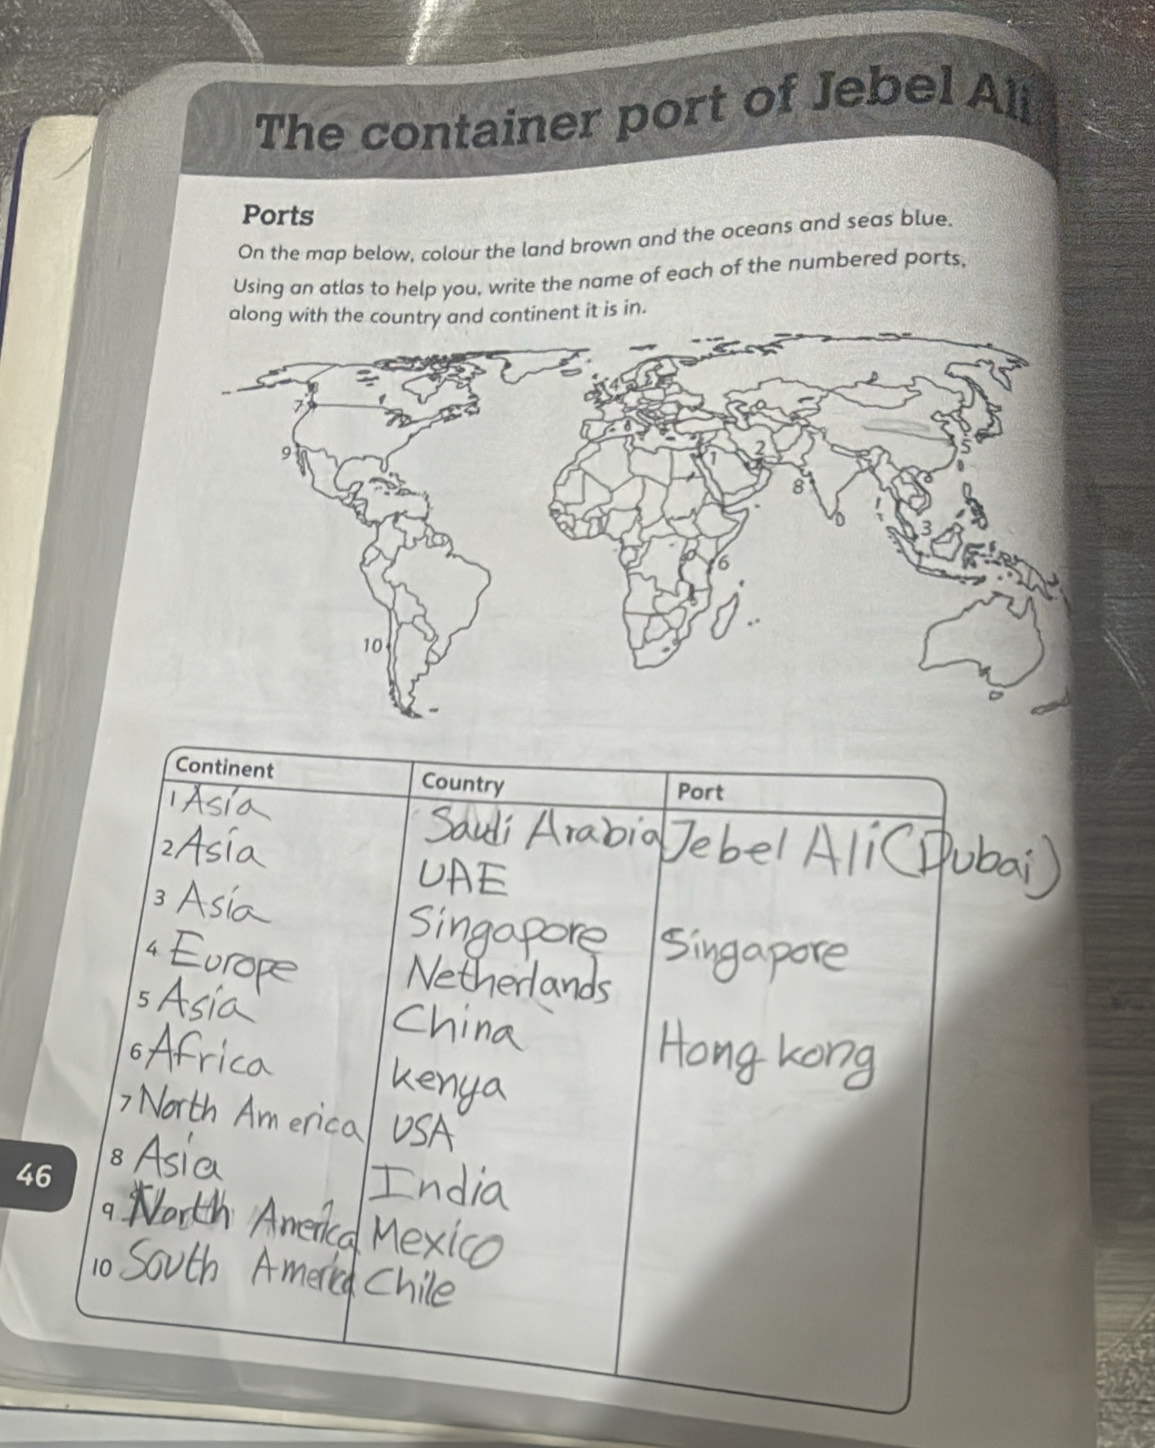 The container port of Jebel Ali
Ports
On the map below, colour the land brown and the oceans and seas blue.
Using an atlas to help you, write the name of each of the numbered ports,
along with the country and continent it is in.
4
7
5
9
2
1
8
3
6
10
Continent Country Port
1 Asia Saudi Arabia Jebel Ali (Dubai)
2 Asia UAE
3 Asia Singapore Singapore
4 Europe Netherlands
5 Asia China Hong kong
6 Africa kenya
7 North America USA
8 Asia India
9 North America Mexico
10 South America Chile
46